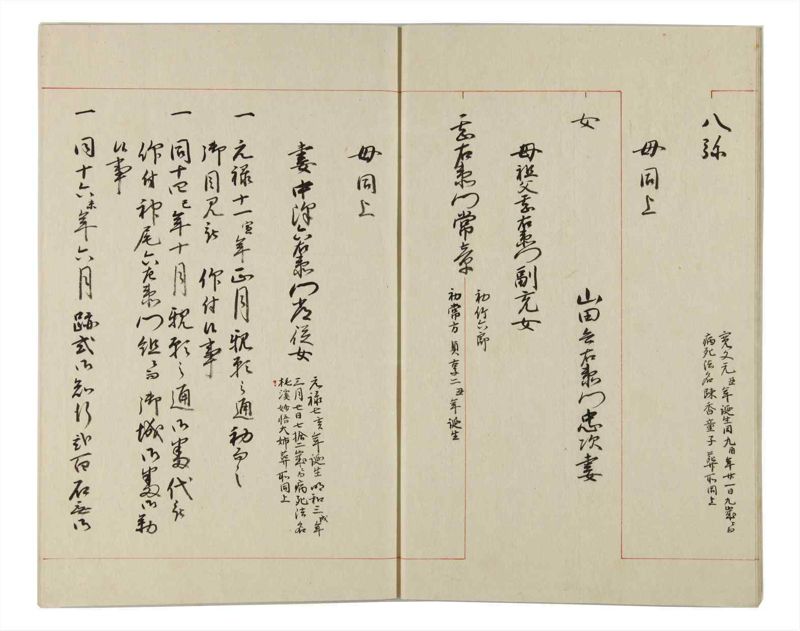 八弥
寛文元丑年誕生同九酉年廿一日九歳ニ而
病死法名陳香童子葬所同上
母同上
女
山田 右衛門忠次妻
母祖父 右衛門副充女
右衛門常章
初竹六郎
初常方貞享二丑年誕生
母同上
妻中澤六右衛門 従女
元禄七亥年誕生明和三戌年
三月七日七拾二歳ニ而病死法名
妙悟大姉葬所同上
一 元禄十一寅年正月親願之通初而之
御目見被 仰付候事
一 同十四巳年十月親願之通御番代被
仰付神尾六左衛門組ニ而御城御番御勤
候事
一 同十六未年六月跡式御知行弐百石